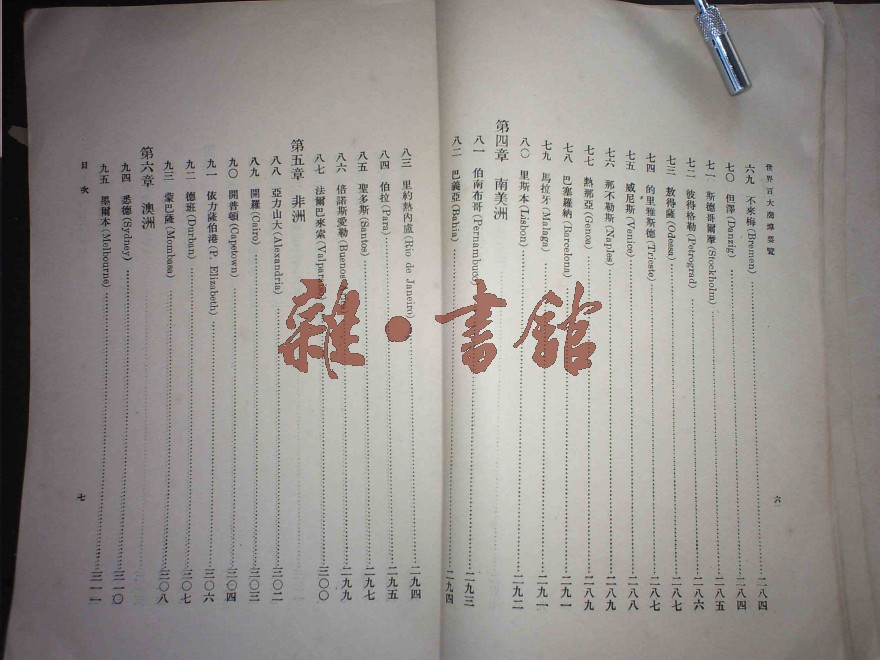 世界百大商埠要覽
六
六九 不來梅(Bremen)……二八四
七〇 但澤(Danzig)……二八四
七一 斯德哥爾摩(Stockholm)……二八五
七二 彼得格勒(Petrograd)……二八六
七三 敖得薩(Odessa)……二八七
七四 的里雅斯德(Trieste)……二八七
七五 威尼斯(Venice)……二八八
七六 那不勒斯(Naples)……二八八
七七 熱那亞(Genoa)……二八九
七八 巴塞羅納(Barcelona)……二九一
七九 馬拉牙(Malaga)……二九一
八〇 里斯本(Lisbon)……二九二
第四章 南美洲
八一 伯南布哥(Pernambuco)……二九三
八二 巴義亞(Bahia)……二九四
八三 里約熱內盧(Rio de Janeiro)……二九四
八四 伯拉(Para)……二九五
八五 聖多斯(Santos)……二九七
八六 倍諾斯愛勒(Buenos……二九九
八七 法爾巴來索(Valparaiso)……三〇〇
第五章 非洲
八八 亞力山大(Alexandria)……三〇二
八九 開羅(Cairo)……三〇三
九〇 開普頓(Capetown)……三〇四
九一 依力薩伯港(P. Elizabeth)……三〇六
九二 德班(Durban)……三〇七
九三 蒙巴薩(Mombasa)……三〇八
第六章 澳洲
九四 悉德(Sydney)……三一〇
九五 墨爾本(Melbourne)……三一一
目次
七
雜·書館